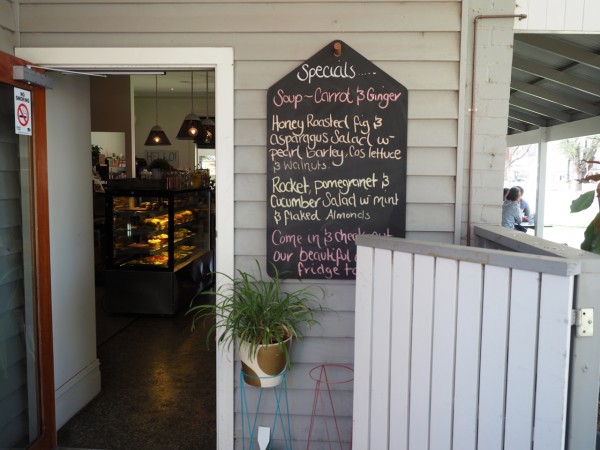 Specials.....
Soup ~ Carrot & Ginger
Honey Roasted fig &
asparagus Salad w-
pearl barley, Cos lettuce
& Walnuts.
Rocket, pomegranet &
Cucumber Salad w mint
& flaked Almonds
Come in & check out
our beautiful
fridge
NO
SMOKING